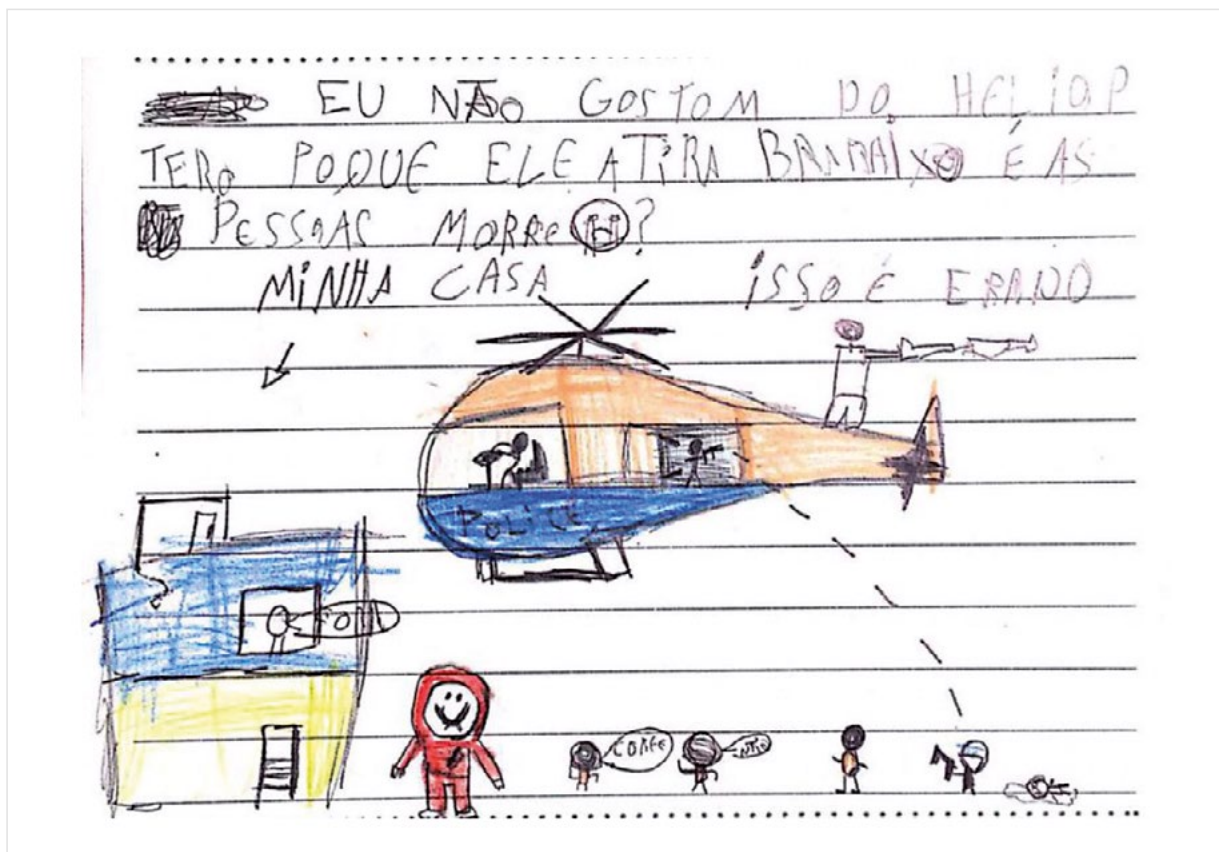 EU NÃO GOSTOM DO HELIOP
TERO POQUE ELE ATIRA BRARAIXO É AS
PESSOAS MORRE ?
MINHA CASA
ISSO É ERADO
POLICE
CORRE
NÃO